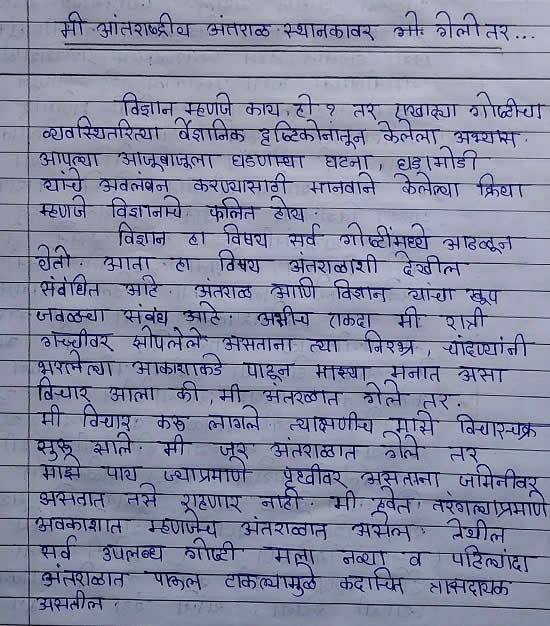 मी आंतराष्ट्रीय अंतराळ स्थानकावर मी गेली तर...
विज्ञान म्हणजे काय, हो ? तर एखाद्या गोष्टीचा
व्यवस्थितरित्या वैज्ञानिक दृष्टिकोनातून केलेला अभ्यास.
आपल्या आजूबाजूला घडणाऱ्या घटना, घडामोडी
यांचे अवलंबन करण्यासाठी मानवाने केलेल्या क्रिया
म्हणजे विज्ञानाचे फलित होय.
विज्ञान हा विषय सर्व गोष्टींमध्ये आढळून
येतो. आता हा विषय अंतराळाशी देखील
संबंधित आहे. अंतराळ आणि विज्ञान यांचा खूप
जवळचा संबंध आहे. अशीच एकदा मी रात्री
गच्चीवर झोपलेले असताना त्या निरभ्र, चांदण्यांनी
भरलेल्या आकाशाकडे पाहून माझ्या मनात असा
विचार आला की, मी अंतरळात गेले तर.
मी विचार करू लागले त्याक्षणीच माझे विचारचक्र
सुरू झाले. मी जर अंतराळात गेले तर
माझे पाय ज्याप्रमाणे पृथ्वीवर असताना जमिनीवर
असतात तसे राहणार नाही. मी हवेत तरंगल्याप्रमाणे
अवकाशात म्हणजेच अंतराळात असेल. तेथील
सर्व उपलब्ध गोष्टी मला नव्या व पहिल्यांदा
अंतराळात पाऊल टाकल्यामुळे कदाचित त्रासदायक
असतील.